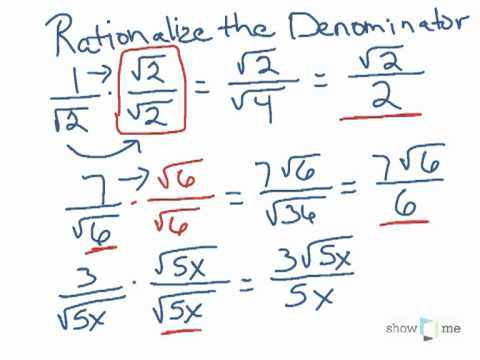 Rationalize the Denominator
1/√2 · √2/√2 = √2/√4 = √2/2
7/√6 · √6/√6 = 7√6/√36 = 7√6/6
3/√5x · √5x/√5x = 3√5x/5x
show me